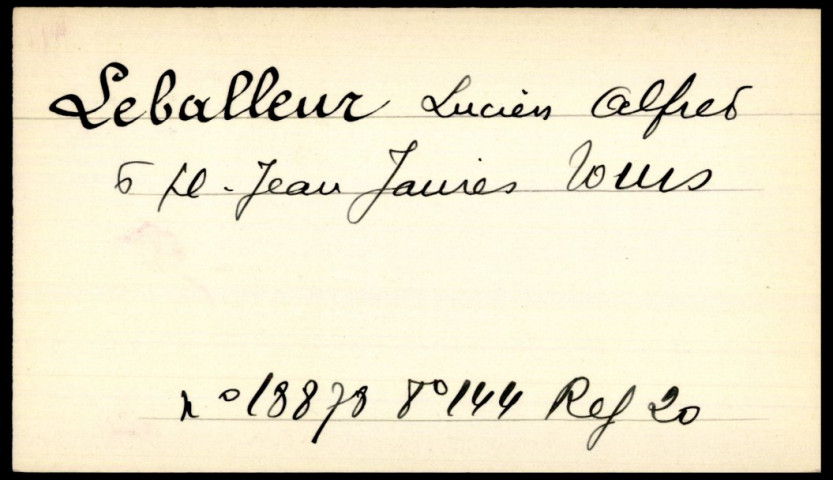 Leballeur Lucien Alfred
5 Pl. Jean Jaurès Tours
n° 18878 F° 144 Reg 20